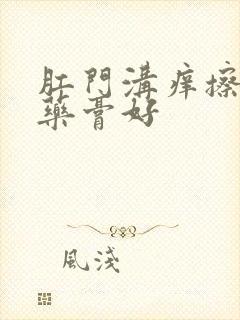 肛門溝痒擦
藥膏好
風淺